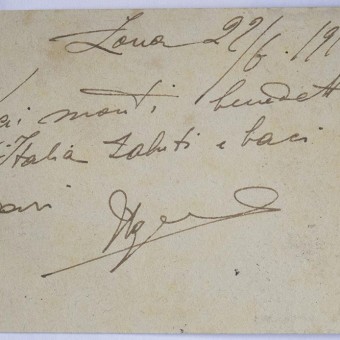 Zona 22/6.191
ai monti benedett
Italia saluti e baci